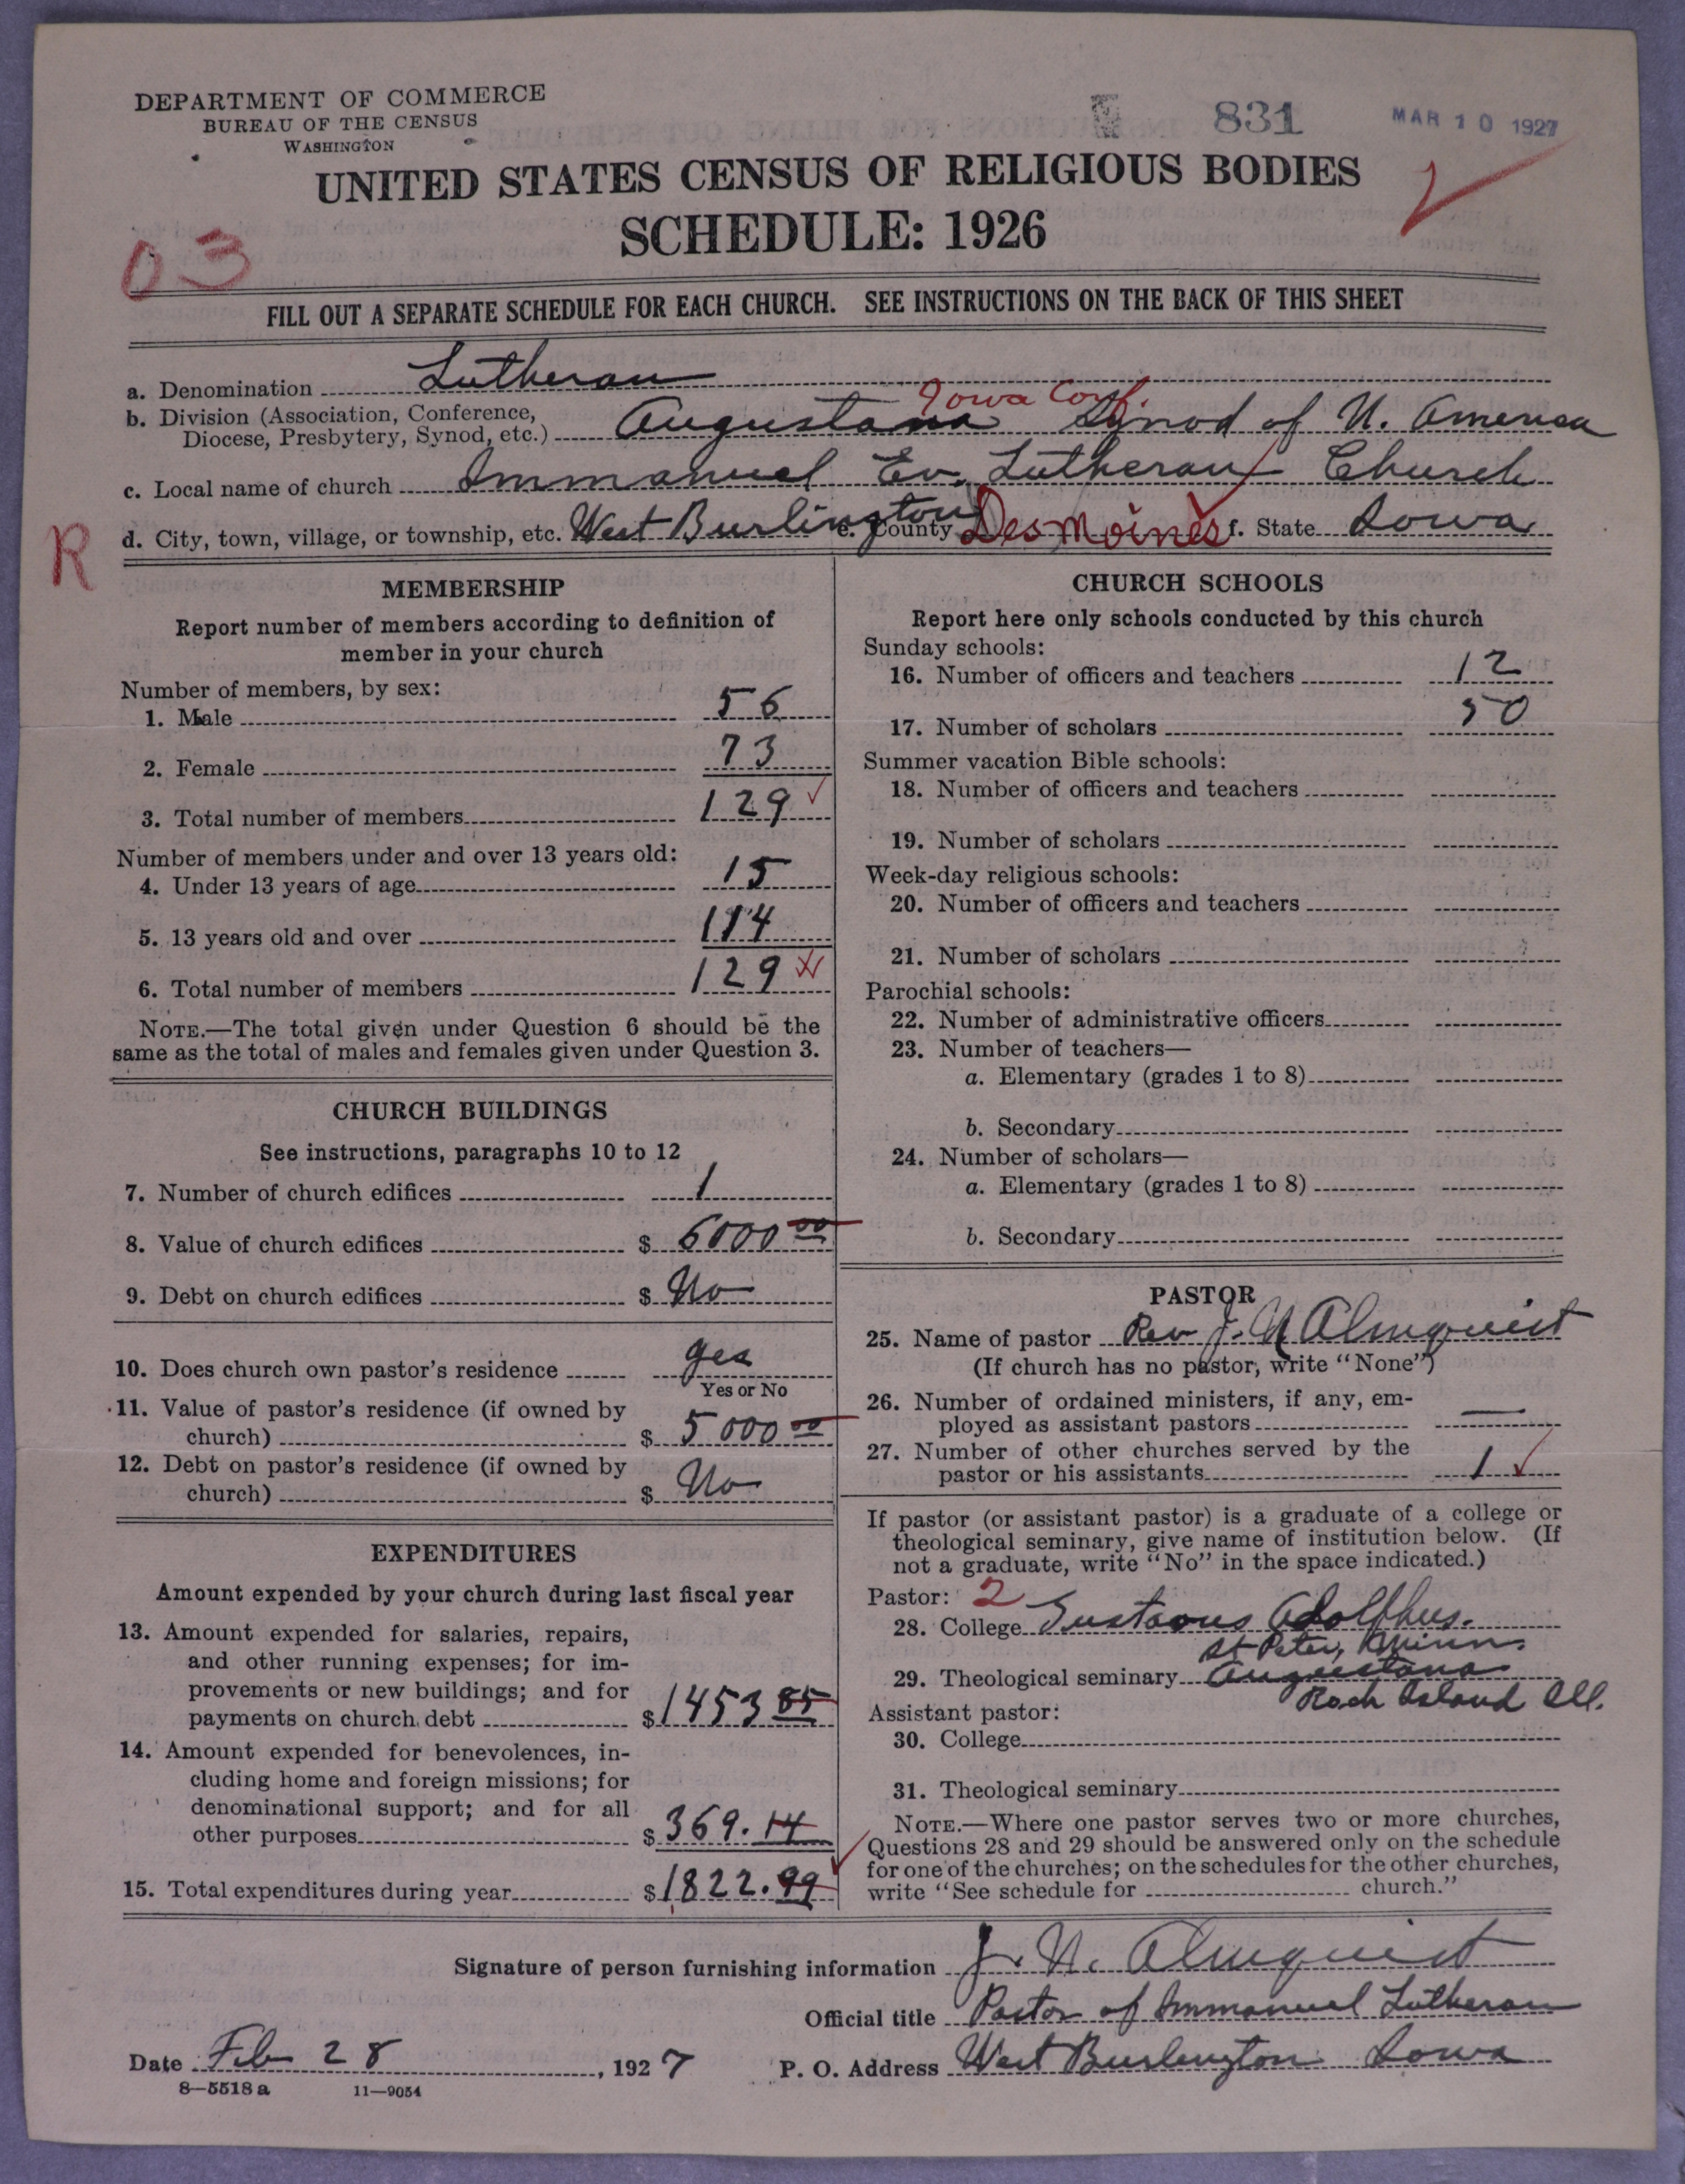 DEPARTMENT OF COMMERCE
BUREAU OF THE CENSUS
WASHINGTON
831
MAR 10 1927
UNITED STATES CENSUS OF RELIGIOUS BODIES
SCHEDULE: 1926
03
FILL OUT A SEPARATE SCHEDULE FOR EACH CHURCH. SEE INSTRUCTIONS ON THE BACK OF THIS SHEET
a. Denomination Lutheran
Iowa Conf.
b. Division (Association, Conference,
Diocese, Presbytery, Synod, etc.) Augustana Synod of N. America
c. Local name of church Immanuel Ev. Lutheran Church
R
d. City, town, village, or township, etc. West Burlington e. County Des Moines f. State Iowa
MEMBERSHIP
Report number of members according to definition of
member in your church
Number of members, by sex:
1. Male 56
2. Female 73
3. Total number of members 129
Number of members under and over 13 years old:
4. Under 13 years of age 15
5. 13 years old and over 114
6. Total number of members 129
NOTE.—The total given under Question 6 should be the
same as the total of males and females given under Question 3.
CHURCH BUILDINGS
See instructions, paragraphs 10 to 12
7. Number of church edifices 1
8. Value of church edifices $ 6000 00
9. Debt on church edifices $ No
10. Does church own pastor's residence yes
Yes or No
11. Value of pastor's residence (if owned by
church) $ 5000 00
12. Debt on pastor's residence (if owned by
church) $ No
EXPENDITURES
Amount expended by your church during last fiscal year
13. Amount expended for salaries, repairs,
and other running expenses; for im-
provements or new buildings; and for
payments on church debt $ 1453 85
14. Amount expended for benevolences, in-
cluding home and foreign missions; for
denominational support; and for all
other purposes $ 369.14
15. Total expenditures during year $ 1822.99
CHURCH SCHOOLS
Report here only schools conducted by this church
Sunday schools:
16. Number of officers and teachers 12
17. Number of scholars 50
Summer vacation Bible schools:
18. Number of officers and teachers
19. Number of scholars
Week-day religious schools:
20. Number of officers and teachers
21. Number of scholars
Parochial schools:
22. Number of administrative officers
23. Number of teachers—
a. Elementary (grades 1 to 8)
b. Secondary
24. Number of scholars—
a. Elementary (grades 1 to 8)
b. Secondary
PASTOR
25. Name of pastor Rev J. N Almquist
(If church has no pastor, write "None")
26. Number of ordained ministers, if any, em-
ployed as assistant pastors —
27. Number of other churches served by the
pastor or his assistants 1
If pastor (or assistant pastor) is a graduate of a college or
theological seminary, give name of institution below. (If
not a graduate, write "No" in the space indicated.)
Pastor: 2
28. College Gustavus Adolphus.
St Peter, Minn.
29. Theological seminary Augustana
Rock Island Ill.
Assistant pastor:
30. College
31. Theological seminary
NOTE.—Where one pastor serves two or more churches,
Questions 28 and 29 should be answered only on the schedule
for one of the churches; on the schedules for the other churches,
write "See schedule for church."
Signature of person furnishing information J. N. Almquist
Official title Pastor of Immanuel Lutheran
Date Feb 28, 1927 P. O. Address West Burlington Iowa
8—5518 a 11—9054